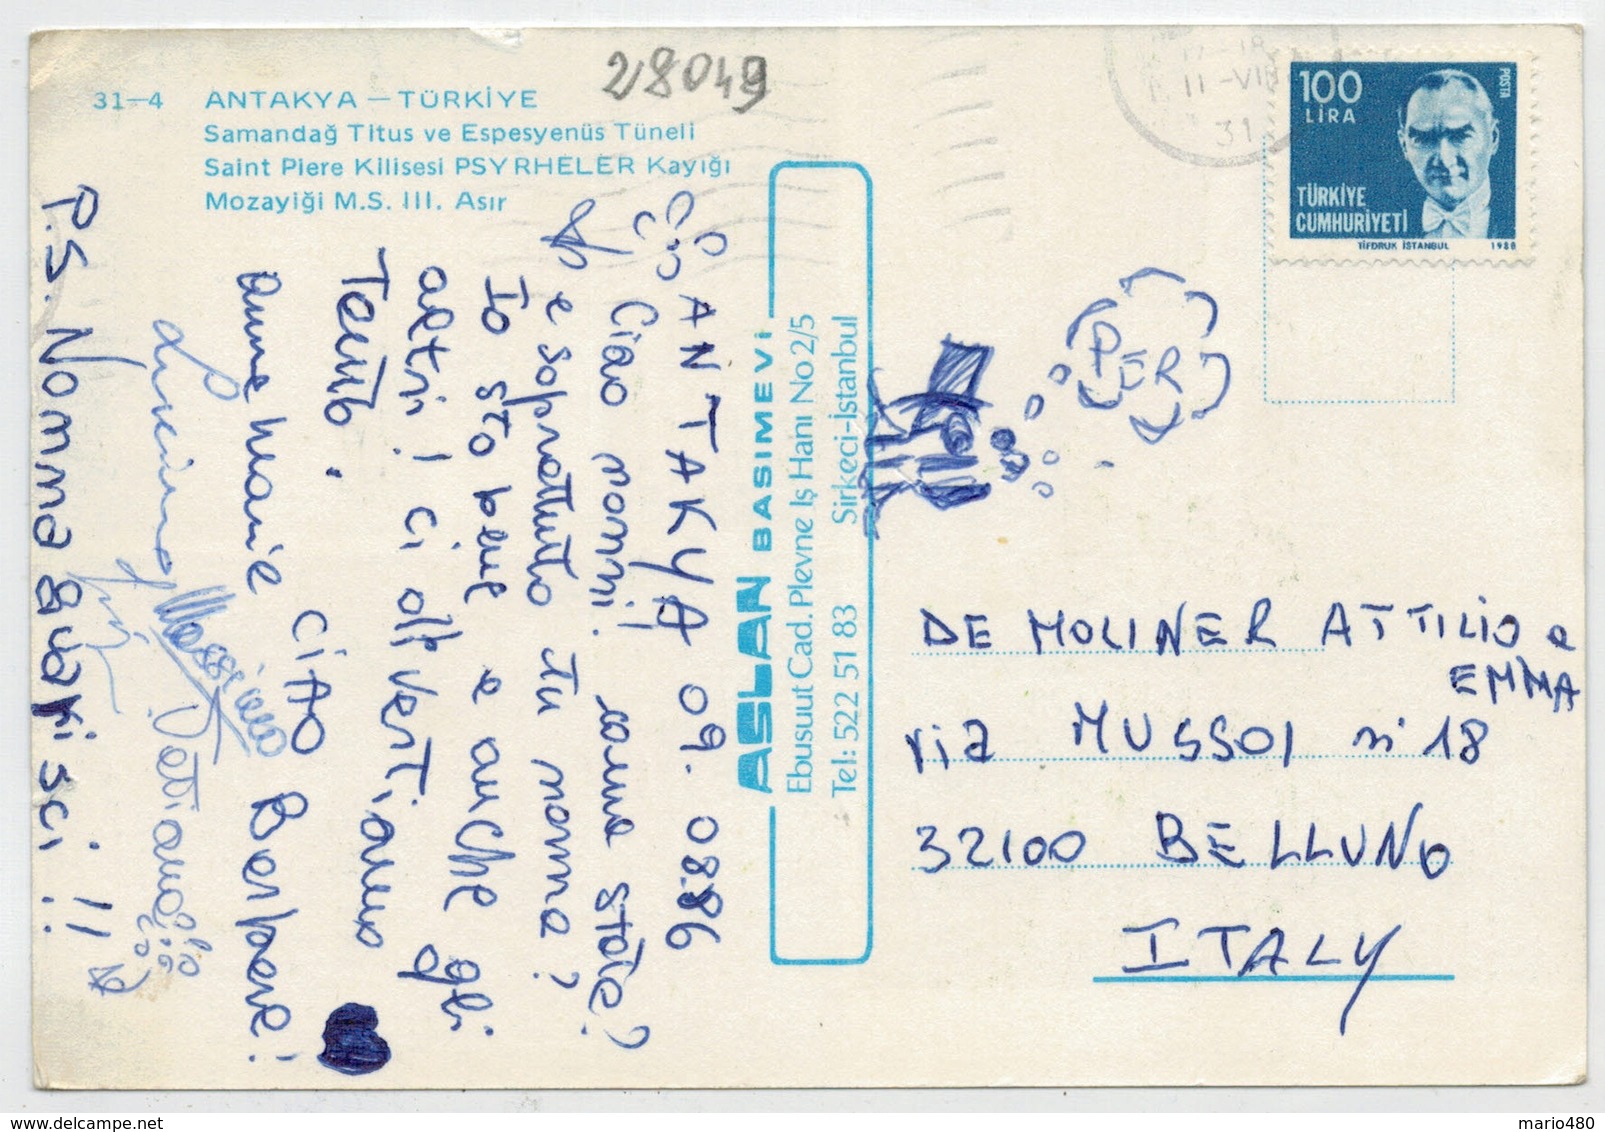 28049
31-4 ANTAKYA – TÜRKİYE
Samandağ Titus ve Espesyenüs Tüneli
Saint Piere Kilisesi PSYRHELER Kayığı
Mozayiği M.S. III. Asır
ANTAKYA 09.08.86
Ciao nonni! come state?
e soprattutto tu nonna?
Io sto bene e anche gli
altri! ci divertiamo
Tanto.
CIAO
Barbara!
Luciana
Massimo
P.S. Nonna guarisci!!!
ASLAN BASIMEVİ
Ebusuut Cad. Plevne İş Hanı No 2/5
Tel: 522 51 83 Sirkeci-İstanbul
11-VII
31
100
LİRA
POSTA
TÜRKİYE
CUMHURİYETİ
TİFDRUK İSTANBUL 1980
PER
DE MOLINER ATTILIO e
EMMA
via MUSSOI n° 18
32100 BELLUNO
ITALY
mario480